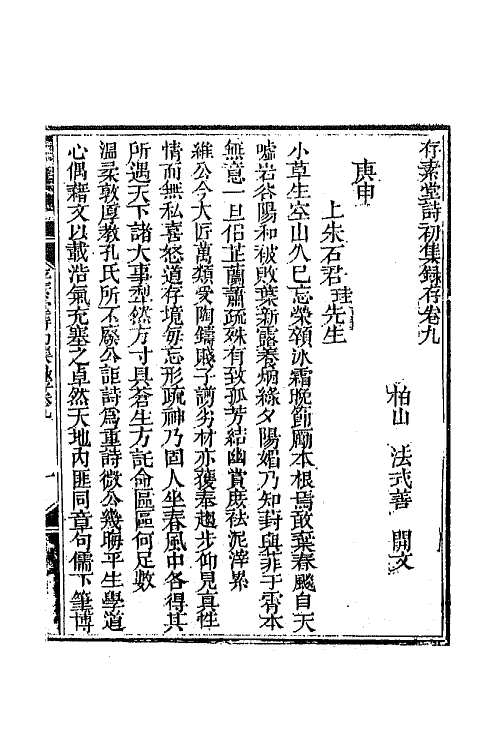 存素堂詩初集錄存卷九
柏山 法式善 開文
庚申
上朱石君珪先生
小草生空山久已忘榮領冰霜晚節勵本根焉敢棄春飈自天
噓岩谷陽和被敗葉新露養炳綠夕陽媚乃知葑與菲于霄本
無意一旦佀芷蘭蕭疏殊有致孤芳結幽賞庶袪泥滓累
維公今大匠萬類受陶鑄賤子謭劣材亦獲奉趨步仰見真性
情而無私喜怒道存境每忘形疏神乃固人坐春風中各得其
所遇天下諸大事犁然方寸具蒼生方託命區區何足數
溫柔敦厚教孔氏所不廢公詎詩為重詩微公幾晦平生學道
心偶藉文以載浩氣充塞之卓然天地內匪同章句儒下筆博